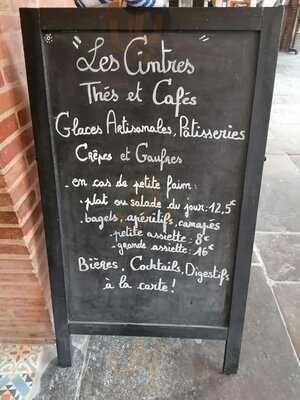 "Les Cintres"
Thés et Cafés
Glaces Artisonales, Pâtisseries
Crêpes et Gaufres
- en cas de petite faim:
. plat ou salade du jour: 12,5€
. bagels, apéritifs, canapés
- petite assiette: 8€
- grande assiette: 16€
Bières, Cocktails, Digestifs
à la carte!